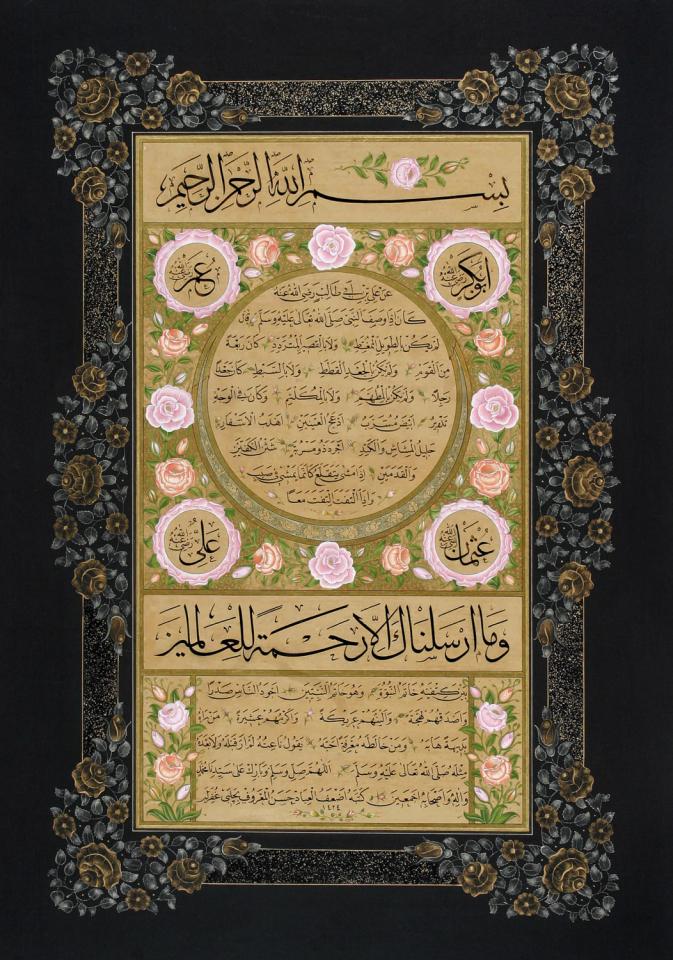 بِسْمِ اللهِ الرَّحْمٰنِ الرَّحِيمِ
ابُوبَكْر رضي الله عنه
عُمَر رضي الله عنه
عن علي بن ابي طالب رضي الله عنه
كان اذا وصف النبي صلى الله تعالى عليه وسلم قال
لم يكن بالطويل الممغط ولا بالقصير المتردد كان ربعة
من القوم ولم يكن بالجعد القطط ولا بالسبط كان جعدا
رجلا ولم يكن بالمطهم ولا بالمكلثم وكان في الوجه
تدوير ابيض مشرب ادعج العينين اهدب الاشفار
جليل المشاش والكتد اجرد ذو مسربة شثن الكفين
والقدمين اذا مشى يتقلع كانما يمشي في صبب
واذا التفت التفت معا
عُثْمَان رضي الله عنه
عَلِيّ رضي الله عنه
وَمَا ارْسَلْنَاكَ الَّا رَحْمَةً لِلْعَالَمِينَ
بين كتفيه خاتم النبوة وهو خاتم النبيين اجود الناس صدرا
واصدقهم لهجة والينهم عريكة واكرمهم عشيرة من رآه
بديهة هابه ومن خالطه معرفة احبه يقول ناعته لم ار قبله ولا بعده
مثله صلى الله تعالى عليه وسلم اللهم صل وسلم وبارك على سيدنا محمد
وآله واصحابه اجمعين كتبه اضعف العباد حسن المعروف بچلبي غفر له
١٤٢٤